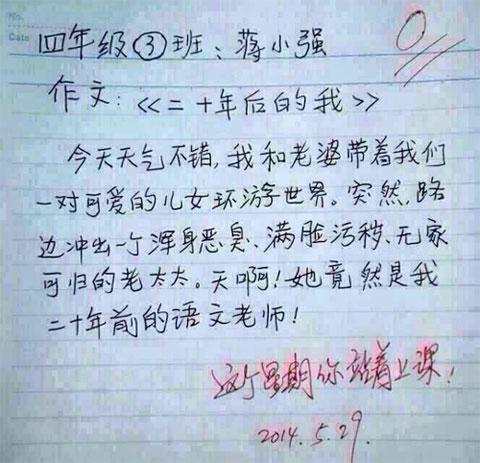 No.
Date
四年级③班:蒋小强
0
作文:<<二十年后的我>>
今天天气不错,我和老婆带着我们
一对可爱的儿女环游世界。突然,路
边冲出一个浑身恶臭、满脸污秽、无家
可归的老太太。天啊!她竟然是我
二十年前的语文老师!
这个星期你站着上课!
2014.5.29.